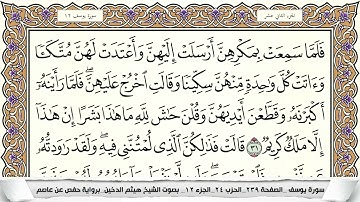 سورة يوسف ١٢
الجزء الثاني عشر
فَلَمَّا سَمِعَتْ بِمَكْرِهِنَّ أَرْسَلَتْ إِلَيْهِنَّ وَأَعْتَدَتْ لَهُنَّ مُتَّكَـًٔا
وَءَاتَتْ كُلَّ وَٰحِدَةٍ مِّنْهُنَّ سِكِّينًا وَقَالَتِ ٱخْرُجْ عَلَيْهِنَّ ۖ فَلَمَّا رَأَيْنَهُۥٓ
أَكْبَرْنَهُۥ وَقَطَّعْنَ أَيْدِيَهُنَّ وَقُلْنَ حَٰشَ لِلَّهِ مَا هَٰذَا بَشَرًا إِنْ هَٰذَآ
إِلَّا مَلَكٌ كَرِيمٌ ٣١ قَالَتْ فَذَٰلِكُنَّ ٱلَّذِى لُمْتُنَّنِى فِيهِ ۖ وَلَقَدْ رَٰوَدتُّهُۥ
سورة يوسف _ الصفحة ٢٣٩_ الحزب ٢٤_ الجزء ١٢ _ بصوت الشيخ هيثم الدخين_ برواية حفص عن عاصم